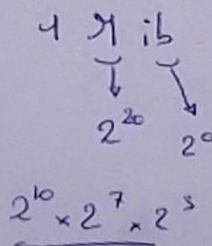 4 M ib
2^20 2^0
2^10 × 2^7 × 2^3